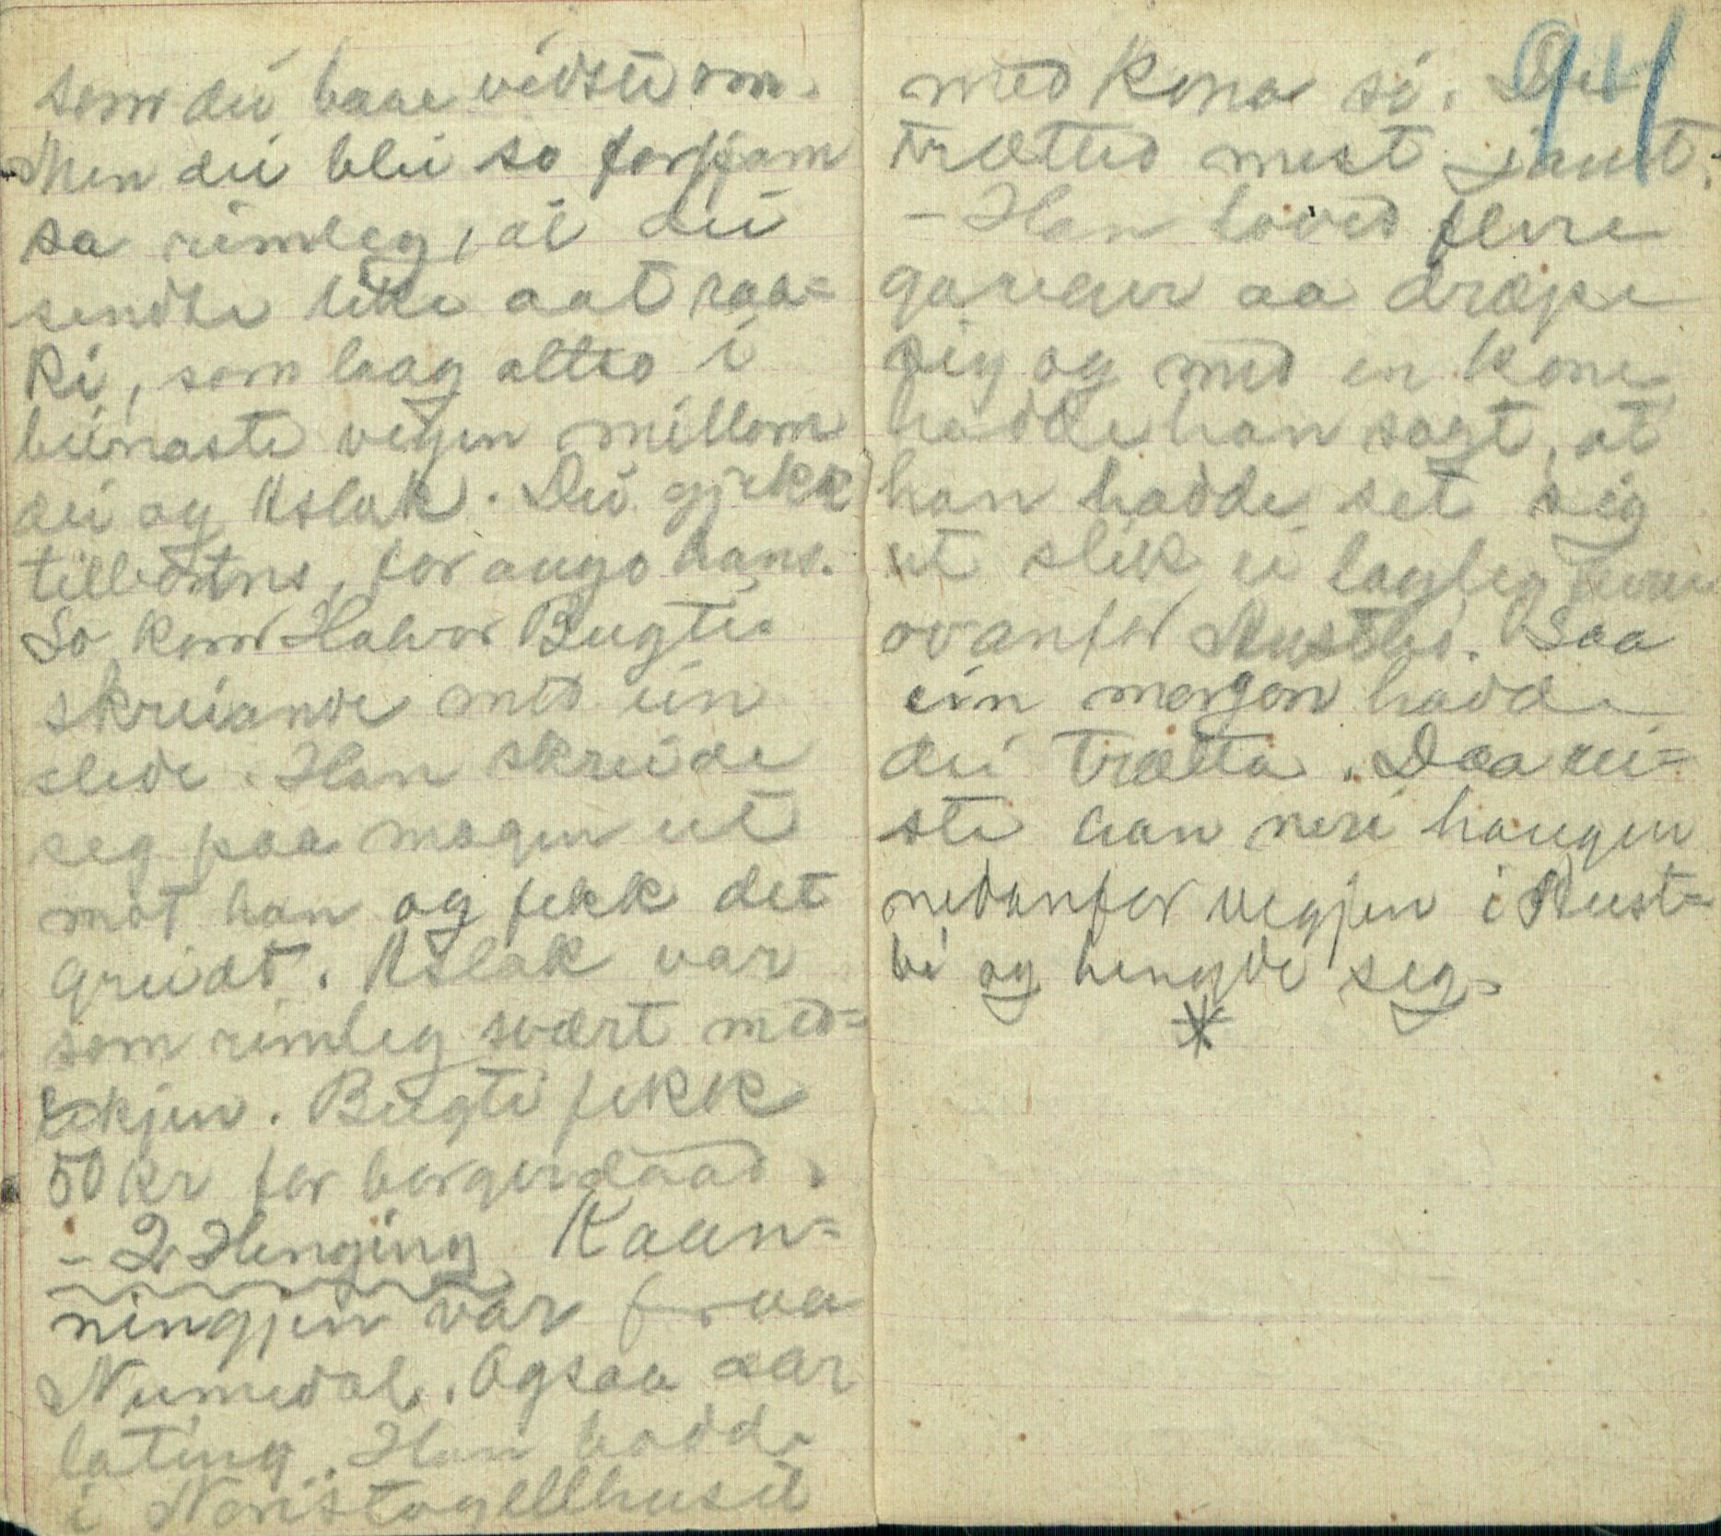 som dei baae vidste om.
Men dei blei so forfjam
sa rimleg, at dei
sendte like aat raa=
ki, som laag altso i
beinaste vegen millom
dei og Aslak. Dei gjekk
tilbotns, for augo hans.
So kom Halvor Bugti
skreiande med ein
slede. Han skreide
seg paa magen ut
mot han og fekk det
greidt. Aslak var
som rimleg svært med=
tekjen. Bugti fekk
50 kr for borgerdaad.
- 2 Henging Kaan=
ningjen var fraa
Numedal. Ogsaa aar
lating. Han hadde
i Noristogellhuset
94
med kona si. Dei
trætted mest jamt.
- Han loved flere
ganger aa dræpe
sig og med en kone
hadde han sagt, at
han hadde set sig
ut slik ei lagleg
ovanfor Austbi. Saa
ein morgon hadde
dei trætta. Daa rei=
ste han neri haugen
nedanfor vegjen i Aust=
bi og hengde seg.
*